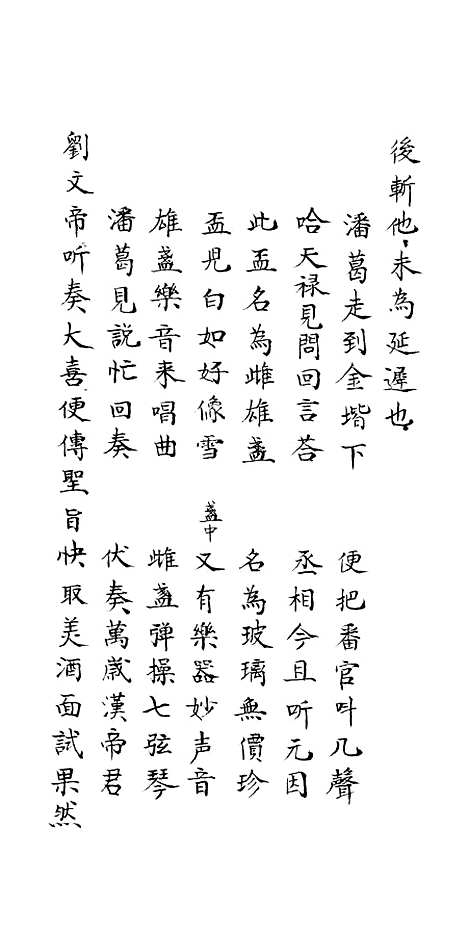 後斬他未為延遲也
潘葛走到金堦下　便把番官叫几聲
哈天祿見問回言荅　丞相今且听元因
此盃名為雌雄盞　名為玻璃無價珍
盃皃白如好像雪　盞中又有樂器妙声音
雄盞樂音来唱曲　雌盞弹操七弦琴
潘葛見説忙回奏　伏奏萬歲漢帝君
劉文帝听奏大喜便傳聖旨快取美酒面試果然